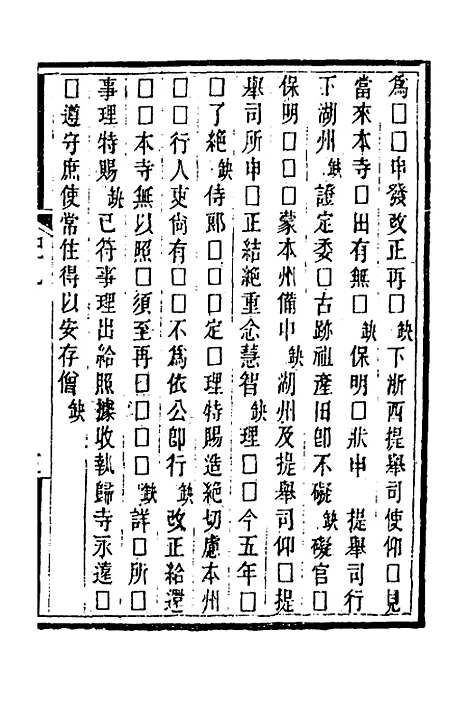 爲□□申發改正再□缺下浙西提舉司使仰□見
當來本寺□田有無□缺保明□狀申　提舉司行
下湖州缺證定委□古跡祖產田即不礙缺礙官□
保明□□□蒙本州備申缺湖州及提舉司仰□提
舉司所申□正結絕重念慧智缺理□□今五年□
□了絕缺侍郎□□□定□理特賜造絕切慮本州
□□行人吏尙有□□不爲依公卽行缺改正給還
□□本寺無以照□須至再□□□□缺詳□所□
事理特賜缺已符事理出給照據收執歸寺永遠□
□遵守庶使常住得以安存僧缺